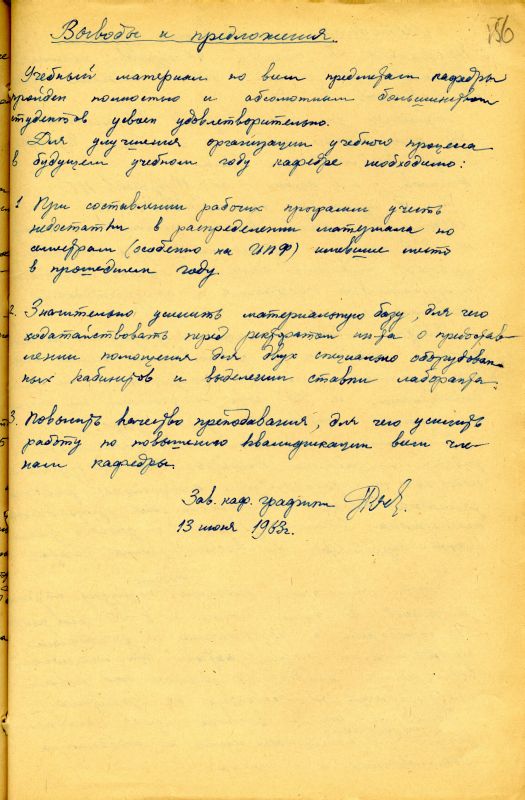 156
Выводы и предложения.
Учебный материал по всем предметам кафедры
пройден полностью и абсолютным большинством
студентов усвоен удовлетворительно.
Для улучшения организации учебного процесса
в будущем учебном году кафедре необходимо:
1. При составлении рабочих программ учесть
недостатки в распределении материала по
семестрам (особенно на ИПФ) имевшие место
в прошедшем году.
2. Значительно усилить материальную базу, для чего
ходатайствовать перед ректоратом ин-та о предостав-
лении помещения для двух специально оборудован-
ных кабинетов и выделении ставки лаборанта.
3. Повысить качество преподавания, для чего усилить
работу по повышению квалификации всем чле-
нам кафедры.
Зав. каф. графики
13 июня 1963г.